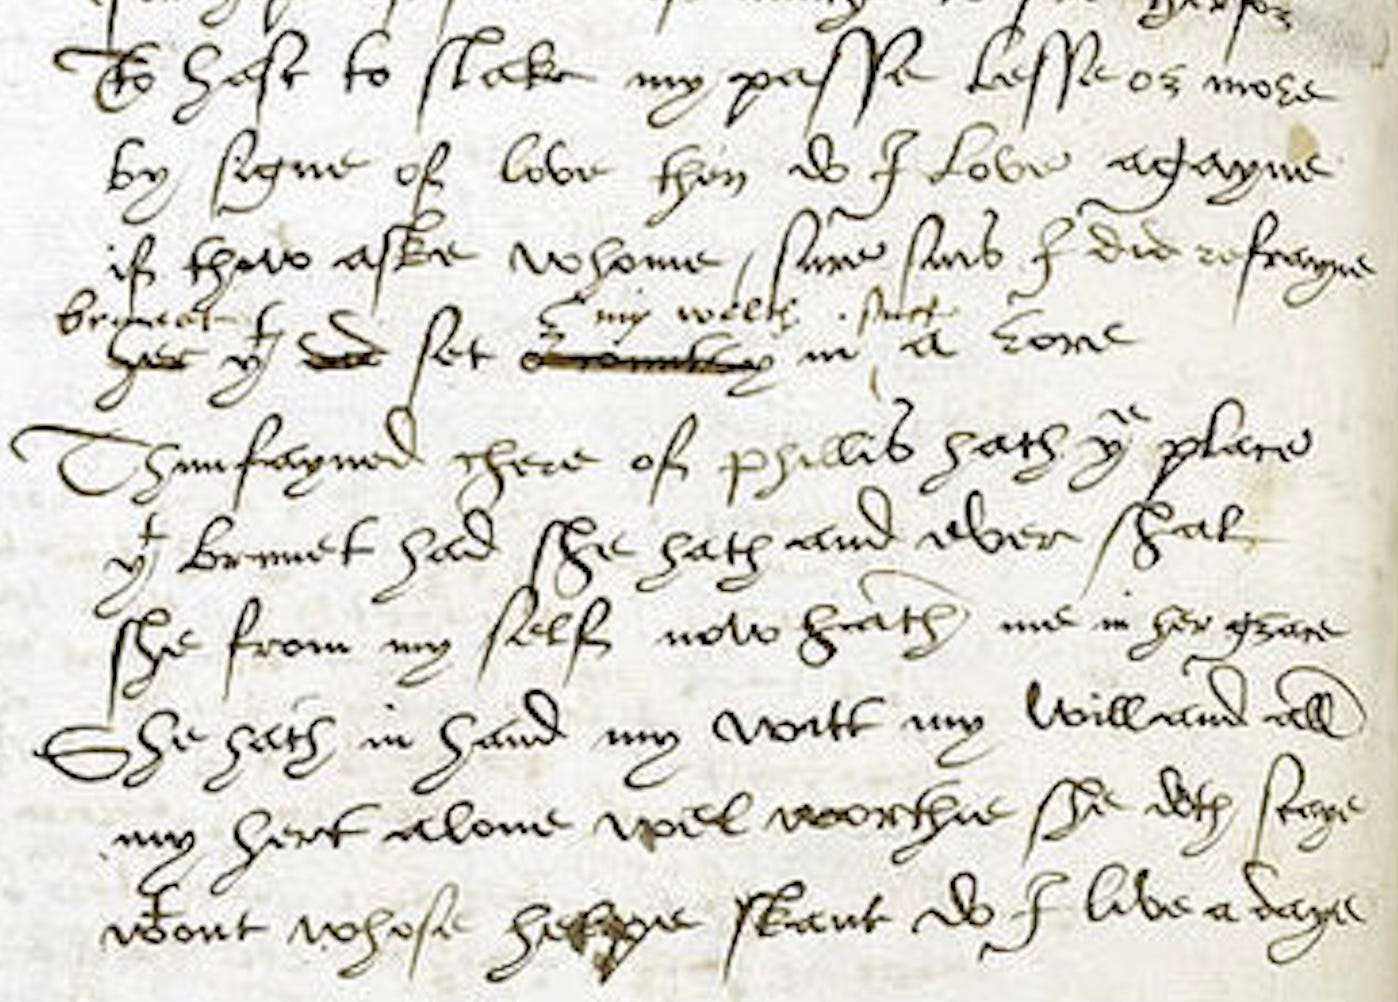 To hast to slake my passe lesse or more
by signe of love then do I love agayne
if thow aske whome / sure sins I did refrayne
brunet yt set my welth in such a rore
Thunfayned chere of phillis hath ye place
yt brunet had she hath and ever shal
she from my self now hath me in her grace
She hath in hand my witt my will and all
my hert alone wel worthie she doth staye
wtout whose helpe skant do I live a daye